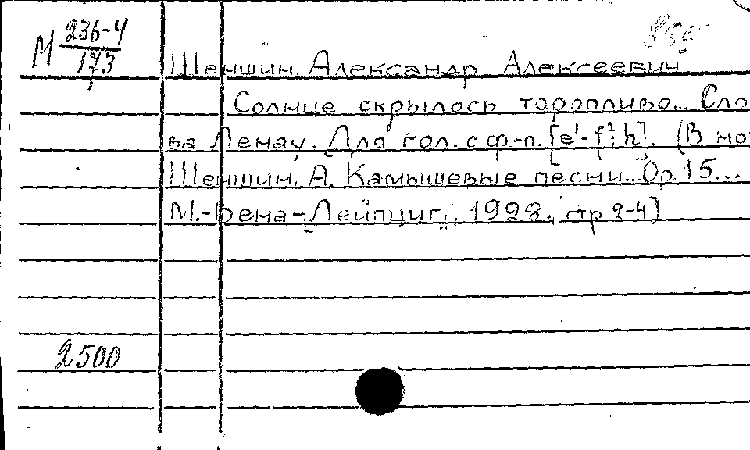 М 236-4
173
Шеншин, Александр Алексеевич
Солнце скрылось торопливо... Сло
ва Ленау. Для гол. с ф-п. [e¹-f²; h]. (В но
Шеншин, А. Камышевые песни. Op. 15...
М.-Вена-Лейпциг, 1928, стр 2-4)
2500